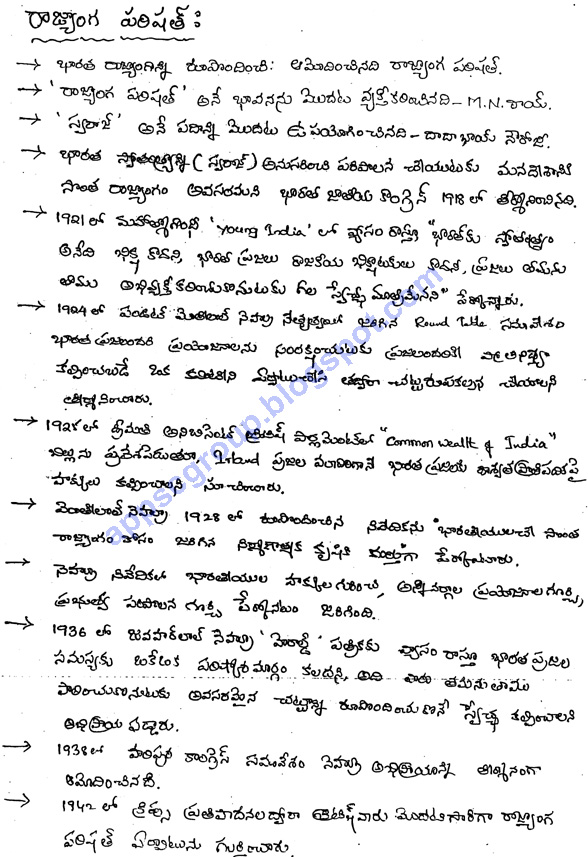 రాజ్యాంగ పరిషత్ :
→ భారత రాజ్యాంగాన్ని రూపొందించి: ఆమోదించినది రాజ్యాంగ పరిషత్.
→ 'రాజ్యాంగ పరిషత్' అనే భావనను మొదట వ్యక్తీకరించినది - M.N. రాయ్.
→ 'స్వరాజ్' అనే పదాన్ని మొదట ఉపయోగించినది - దాదాభాయ్ నౌరోజీ.
→ భారత స్వాతంత్ర్యాన్ని (స్వరాజ్) అనుసరించి పరిపాలన చేయుటకు మనదేశానికి
సొంత రాజ్యాంగం అవసరమని భారత జాతీయ కాంగ్రెస్ 1918 లో తీర్మానించినది.
→ 1921 లో మహాత్మాగాంధీ 'Young India' లో వ్యాసం రాస్తూ "భారత్‌కు స్వాతంత్ర్యం
అనేది భిక్ష కాదని, భారత ప్రజలు రాజకీయ భిక్షాటకులు కాదని, ప్రజలు తమను
తాము అభివ్యక్తీకరించుకొనుటకు గల స్వేచ్ఛ మాత్రమేనని" పేర్కొన్నారు.
→ 1924 లో పండిట్ మోతిలాల్ నెహ్రూ నేతృత్వంలో జరిగిన Round Table సమావేశం
భారత ప్రజలందరి ప్రయోజనాలను సంరక్షించుటకు ప్రజలందరికీ ప్రాతినిధ్యం
కల్పించబడే ఒక కమిటీని ఏర్పాటుచేసి తద్వారా చట్టరూపకల్పన చేయాలని
తీర్మానించారు.
→ 1925 లో శ్రీమతి అనిబిసెంట్ బ్రిటిష్ పార్లమెంట్‌లో "Common wealth of India"
బిల్లును ప్రవేశపెడుతూ, Ireland ప్రజల మాదిరిగానే భారత ప్రజలకు శాశ్వత ప్రాతిపదికపై
హక్కులు కల్పించాలని సూచించారు.
→ మోతిలాల్ నెహ్రూ 1928 లో రూపొందించిన నివేదికను "భారతీయులచే సొంత
రాజ్యాంగం కోసం జరిగిన నిర్మాణాత్మక కృషి" గా పేర్కొన్నారు.
→ నెహ్రూ నివేదికలో భారతీయుల హక్కుల గురించి, అన్నివర్గాల ప్రయోజనాల గూర్చి,
ప్రభుత్వ పరిపాలన గూర్చి పేర్కొనటం జరిగింది.
→ 1936 లో జవహర్‌లాల్ నెహ్రూ 'హెరాల్డ్' పత్రికకు వ్యాసం రాస్తూ భారత ప్రజల
సమస్యకు ఒకేఒక పరిష్కారమార్గం కలదని, అది వారు తమను తాము
పాలించుకొనుటకు అవసరమైన చట్టాన్ని రూపొందించుకొనే స్వేచ్ఛ కల్పించాలని
అభిప్రాయపడ్డారు.
→ 1938 లో హరిపుర కాంగ్రెస్ సమావేశం నెహ్రూ అభిప్రాయాన్ని తీర్మానంగా
ఆమోదించినది.
→ 1942 లో క్రిప్స్ ప్రతిపాదనల ద్వారా బ్రిటిష్ వారు మొదటిసారిగా రాజ్యాంగ
పరిషత్ ఏర్పాటును గుర్తించారు.
appscgroup.blogspot.com